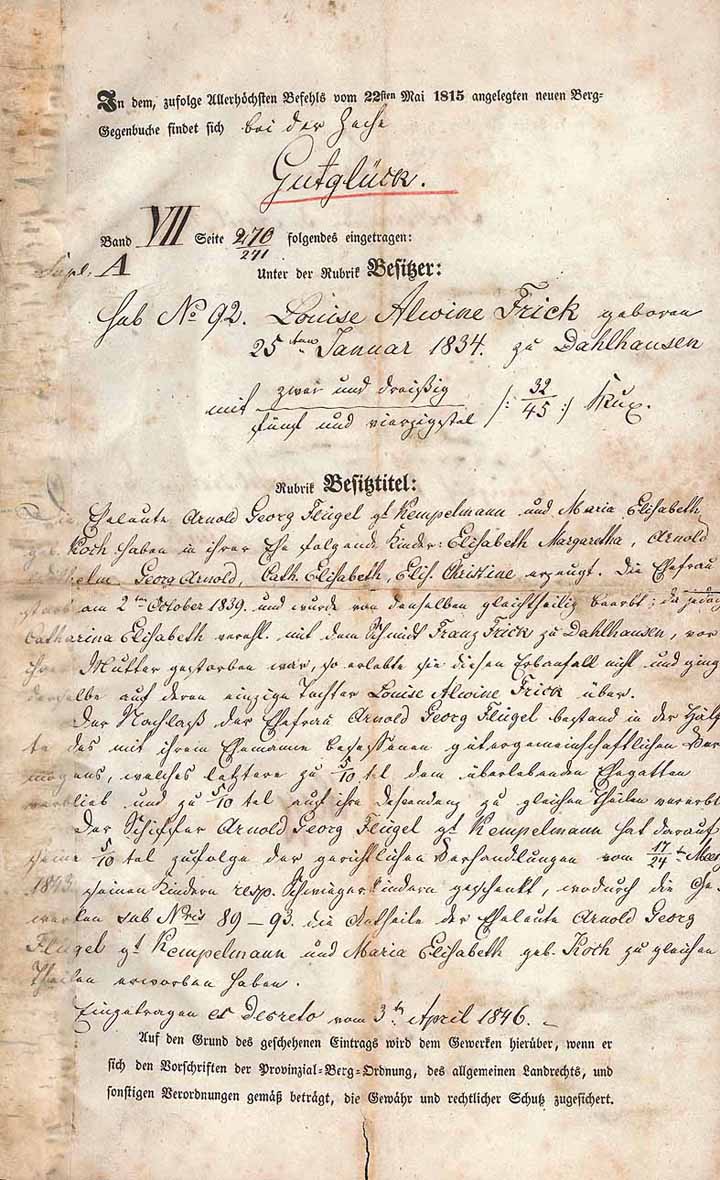 In dem, zufolge Allerhöchsten Befehls vom 22sten Mai 1815 angelegten neuen Berg-
Gegenbuche findet sich bei der Zeche
Gutglück.
Band VII Seite 270/271 folgendes eingetragen:
A
Unter der Rubrik Besitzer:
sub No 92. Louise Alwine Frick geboren
25ten Januar 1834. zu Dahlhausen
mit zwei und dreißig / fünf und vierzigstel /: 32/45 :/ Kux.
Rubrik Besitztitel:
Die Eheleute Arnold Georg Flügel gt Kempelmann und Maria Elisabeth
geb. Koch haben in ihrer Ehe folgende Kinder: Elisabeth Margaretha, Arnold
Wilhelm, Georg Arnold, Cath. Elisabeth, Elis. Christine erzeugt. Die Ehefrau
starb am 2ten October 1839. und wurde von denselben gleichtheilig beerbt; da jedoch
Catharina Elisabeth verehl. mit dem Schmidt Franz Frick zu Dahlhausen, vor
ihrer Mutter gestorben war, so erlebte sie diesen Erbanfall nicht und ging
derselbe auf deren einzige Tochter Louise Alwine Frick über.
Der Nachlaß der Ehefrau Arnold Georg Flügel bestand in der Hälf-
te des mit ihrem Ehemanne besessenen gütergemeinschaftlichen Ver-
mögens, welches letztere zu 5/10 tel dem überlebenden Ehegatten
verblieb und zu 5/10 tel auf ihre Descendenz zu gleichen Theilen vererbt
Der Schiffer Arnold Georg Flügel gt Kempelmann hat darauf
seine 5/10 tel zufolge der gerichtlichen Verhandlungen vom 17/24 ten
1843. seinen Kindern resp. Schwiegerkindern geschenkt, wodurch die Ge-
werken sub Nris 89-93. die Antheile der Eheleute Arnold Georg
Flügel gt Kempelmann und Maria Elisabeth geb. Koch zu gleichen
Theilen erworben haben.
Eingetragen ex Decreto vom 3ten April 1846.
Auf den Grund des geschehenen Eintrags wird dem Gewerken hierüber, wenn er
sich den Vorschriften der Provinzial-Berg-Ordnung, des allgemeinen Landrechts, und
sonstigen Verordnungen gemäß beträgt, die Gewähr und rechtlicher Schutz zugesichert.